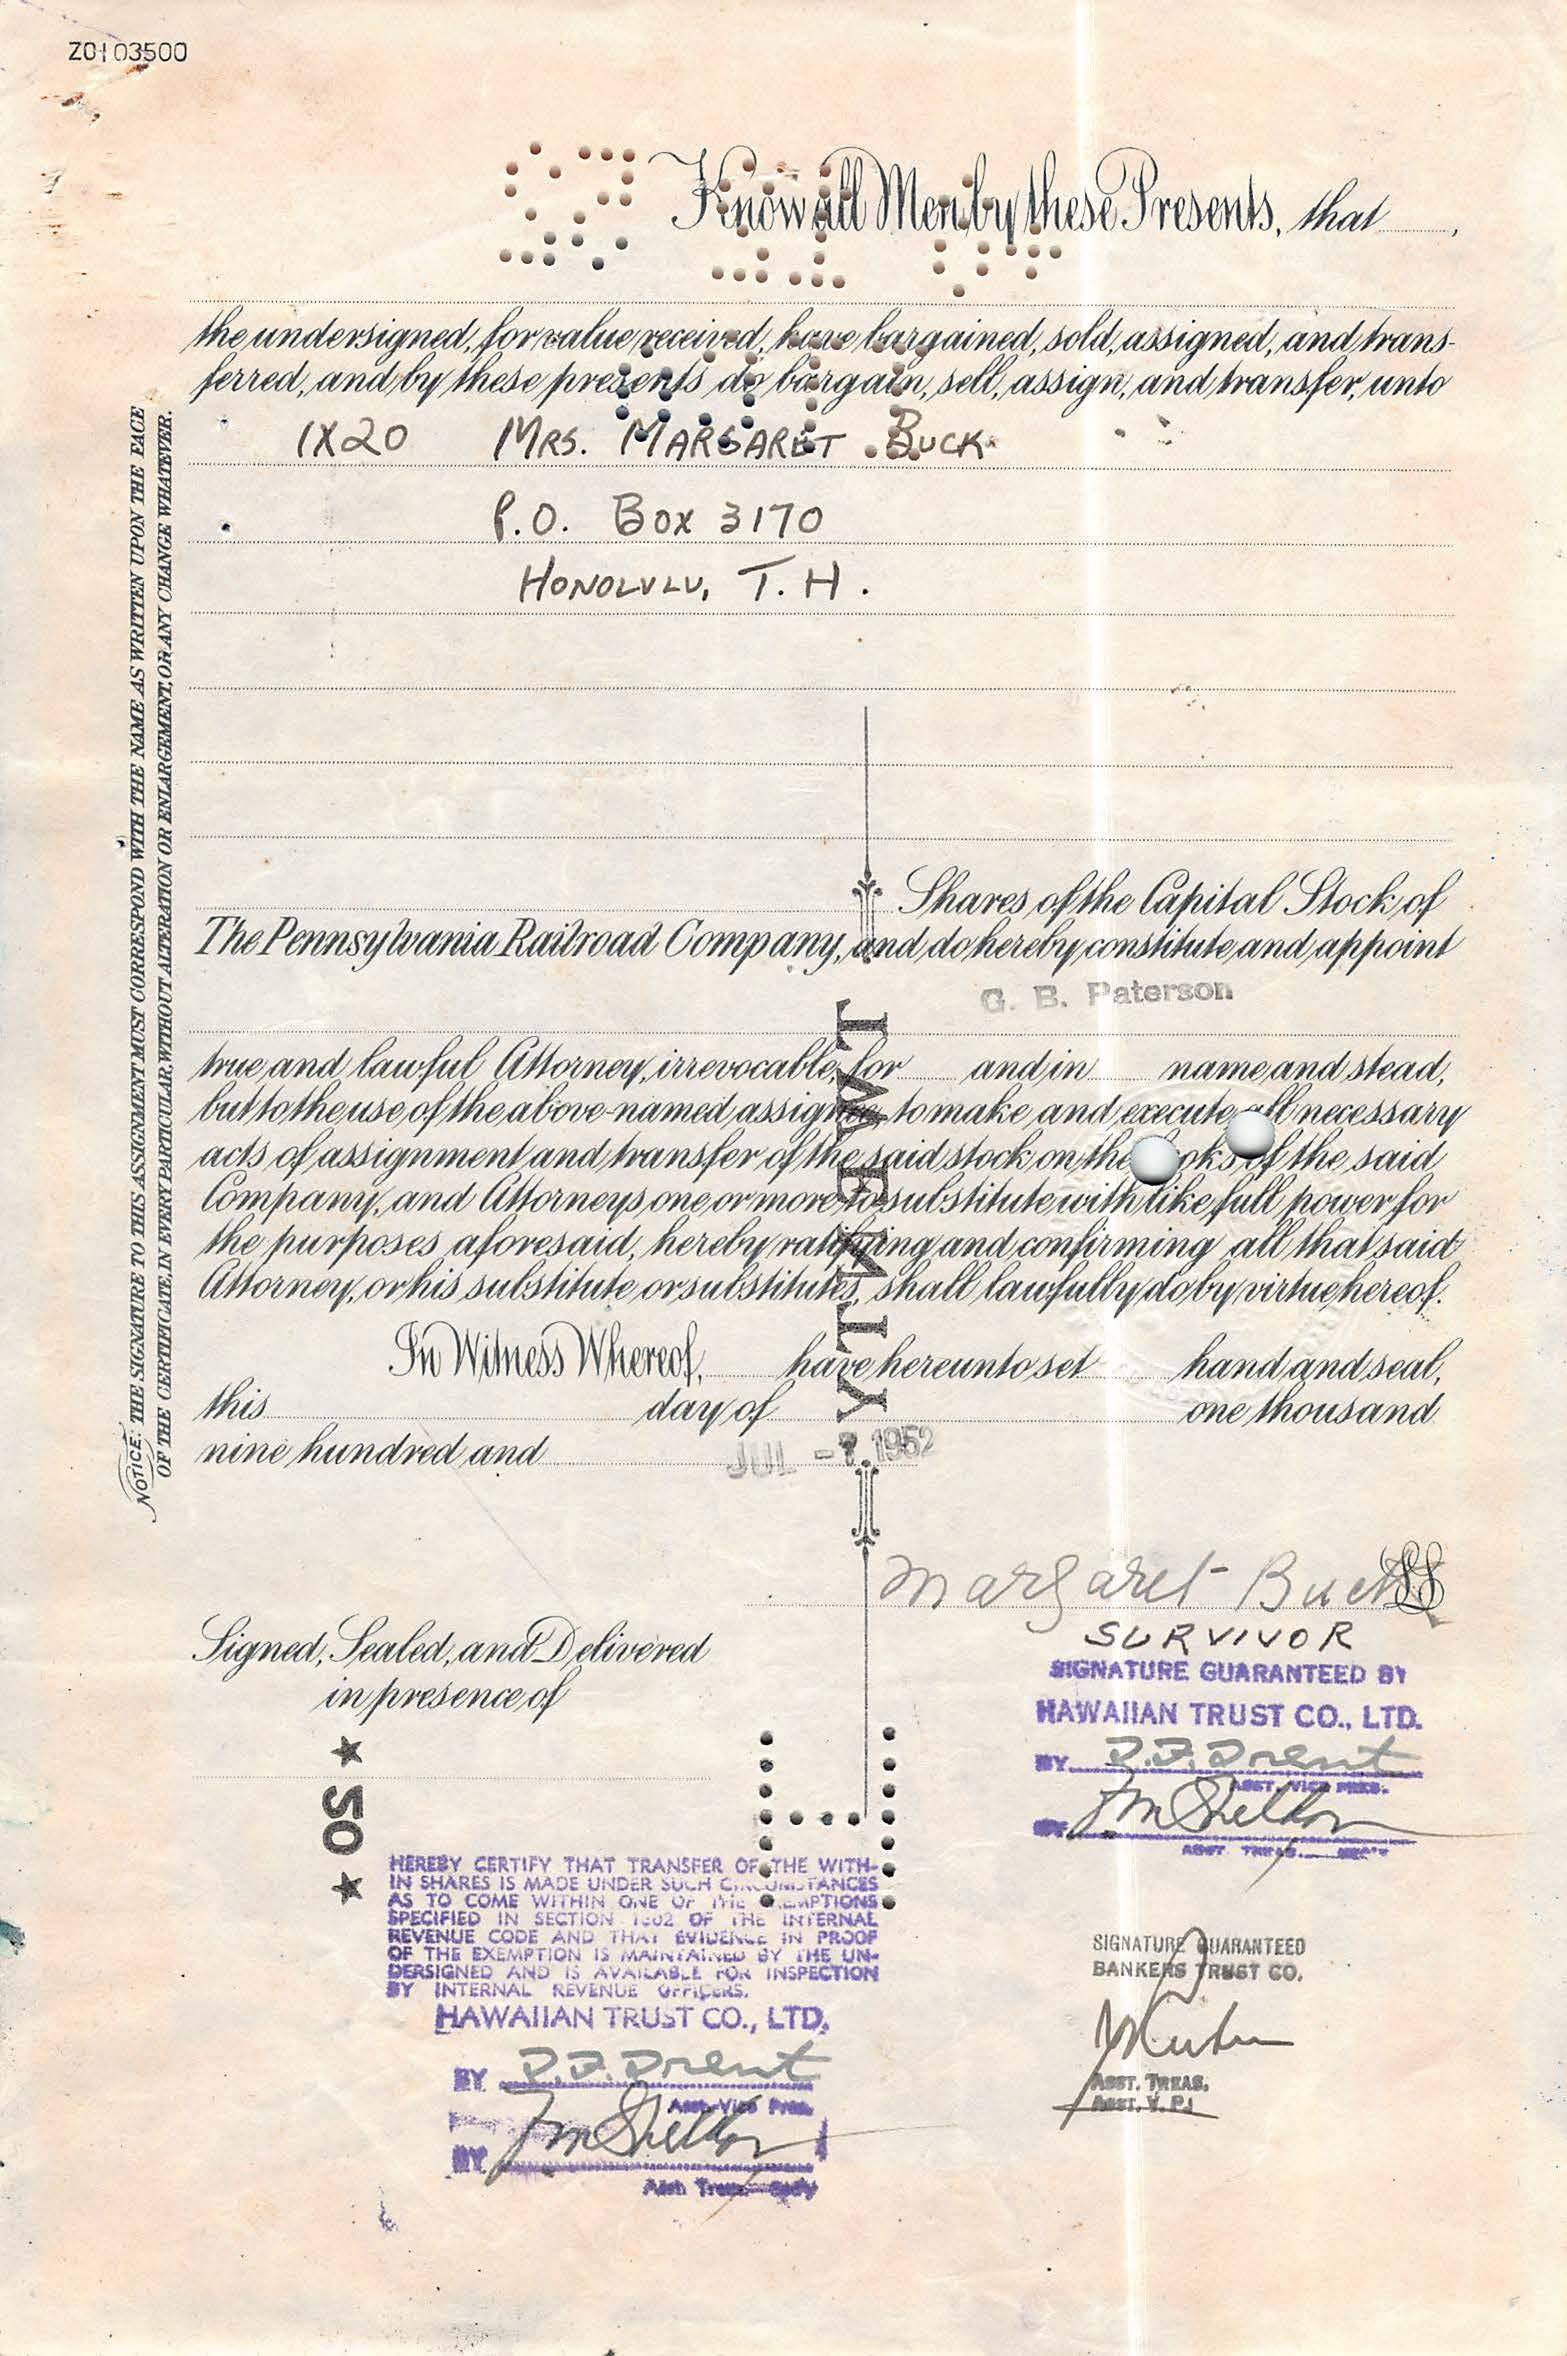 Z0103500
Know all Men by these Presents, that
the undersigned, for value received, have bargained, sold, assigned, and trans-
ferred, and by these presents do bargain, sell, assign, and transfer, unto
1X20 MRS. MARGARET BUCK
P.O. BOX 3170
HONOLULU, T.H.
Shares of the Capital Stock of
The Pennsylvania Railroad Company, and do hereby constitute and appoint
G. B. Paterson
true and lawful Attorney, irrevocable, for and in name and stead,
but to the use of the above-named assignee, to make and execute all necessary
acts of assignment and transfer of the said stock on the books of the said
Company, and Attorneys one or more to substitute with like full power for
the purposes aforesaid, hereby ratifying and confirming all that said
Attorney, or his substitute or substitutes, shall lawfully do by virtue hereof.
In Witness Whereof, have hereunto set hand and seal,
this day of one thousand
nine hundred and
JUL -7 1952
TWENTY
NOTICE: THE SIGNATURE TO THIS ASSIGNMENT MUST CORRESPOND WITH THE NAME AS WRITTEN UPON THE FACE
OF THE CERTIFICATE, IN EVERY PARTICULAR, WITHOUT ALTERATION OR ENLARGEMENT, OR ANY CHANGE WHATEVER.
Margaret Buck LS
SURVIVOR
Signed, Sealed, and Delivered
in presence of
SIGNATURE GUARANTEED BY
HAWAIIAN TRUST CO., LTD.
BY
ASST. VICE PRES.
BY
★ 50 ★
HEREBY CERTIFY THAT TRANSFER OF THE WITH-
IN SHARES IS MADE UNDER SUCH CIRCUMSTANCES
AS TO COME WITHIN ONE OF THE EXEMPTIONS
SPECIFIED IN SECTION 1802 OF THE INTERNAL
REVENUE CODE AND THAT EVIDENCE IN PROOF
OF THE EXEMPTION IS MAINTAINED BY THE UN-
DERSIGNED AND IS AVAILABLE FOR INSPECTION
BY INTERNAL REVENUE OFFICERS.
HAWAIIAN TRUST CO., LTD.
BY
Asst. Vice Pres.
BY
SIGNATURE GUARANTEED
BANKERS TRUST CO.
ASST. TREAS.
ASST. V. P.